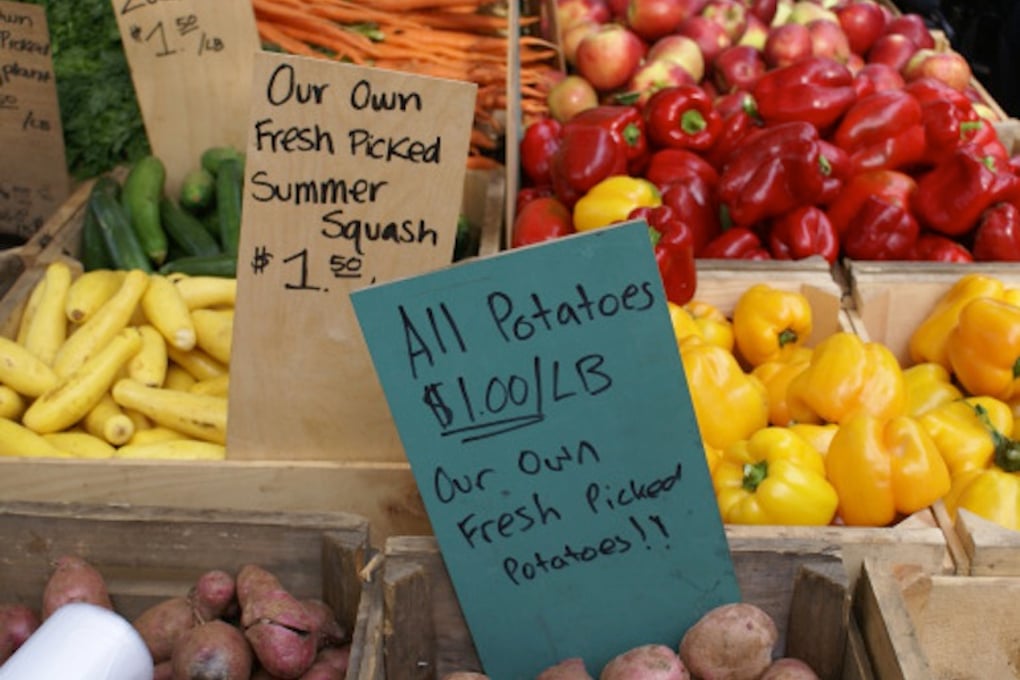 Picked
/LB
$1.50/LB
Our Own
Fresh Picked
Summer
Squash
$1.50
All Potatoes
$1.00/LB
Our Own
Fresh Picked
Potatoes!!